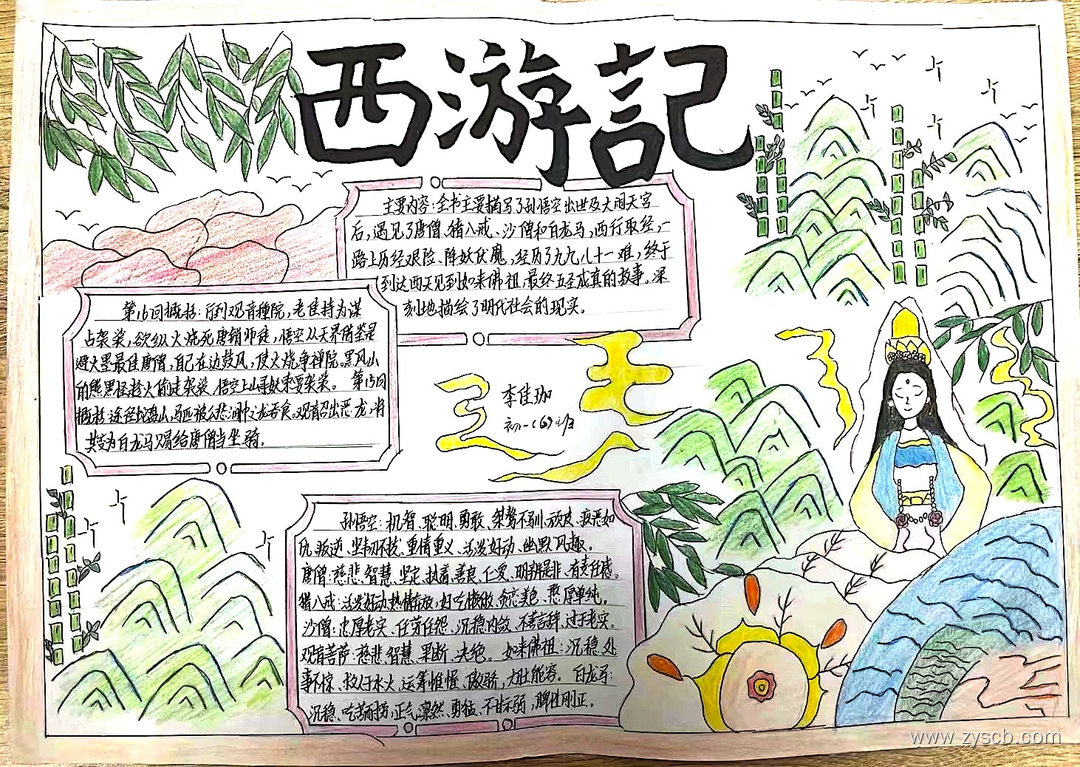 西游記
主要内容:全书主要描写了孙悟空出世及大闹天宫
后,遇见了唐僧、猪八戒、沙僧和白龙马,西行取经,一
路上历经艰险、降妖伏魔,经历了九九八十一难,终于
到达西天见到如来佛祖,最终五圣成真的故事。深
刻地描绘了明代社会的现实。
第16回概括:行到观音禅院,老住持为谋
占袈裟,欲纵火烧死唐僧师徒,悟空从天界借
避火罩 唐僧,自己在边鼓风,使火烧 禅院。黑风山
的熊黑怪趁火 袈裟,悟空上山 袈裟。 第15回
概括:途径 山,马匹被 涧中 龙吞食,观音召出恶龙,将
其 为白龙马,赐给唐僧当坐骑。
李佳珈
初一(6)
孙悟空:机智、聪明、勇敢、桀骜不驯、顽皮、疾恶如
仇、叛逆、坚韧不拔、重情重义、活发好动、幽默风趣。
唐僧:慈悲、智慧、坚定、执着、善良、仁爱、明辨是非、有责任感。
猪八戒:活发好动、热情 放,好吃懒做、贪恋美色、憨厚单纯。
沙僧:忠厚老实、任劳任怨、沉稳内敛、不善言辞、过于老实。
观音菩萨:慈悲、智慧、果断、决绝。 如来佛祖:沉稳、处
事不惊、救 于水火、运筹帷幄、 大肚能容。 白龙马:
沉稳、吃苦耐劳、正气凛然、勇猛、不甘示弱、脾性刚正。
www.zyscb.com